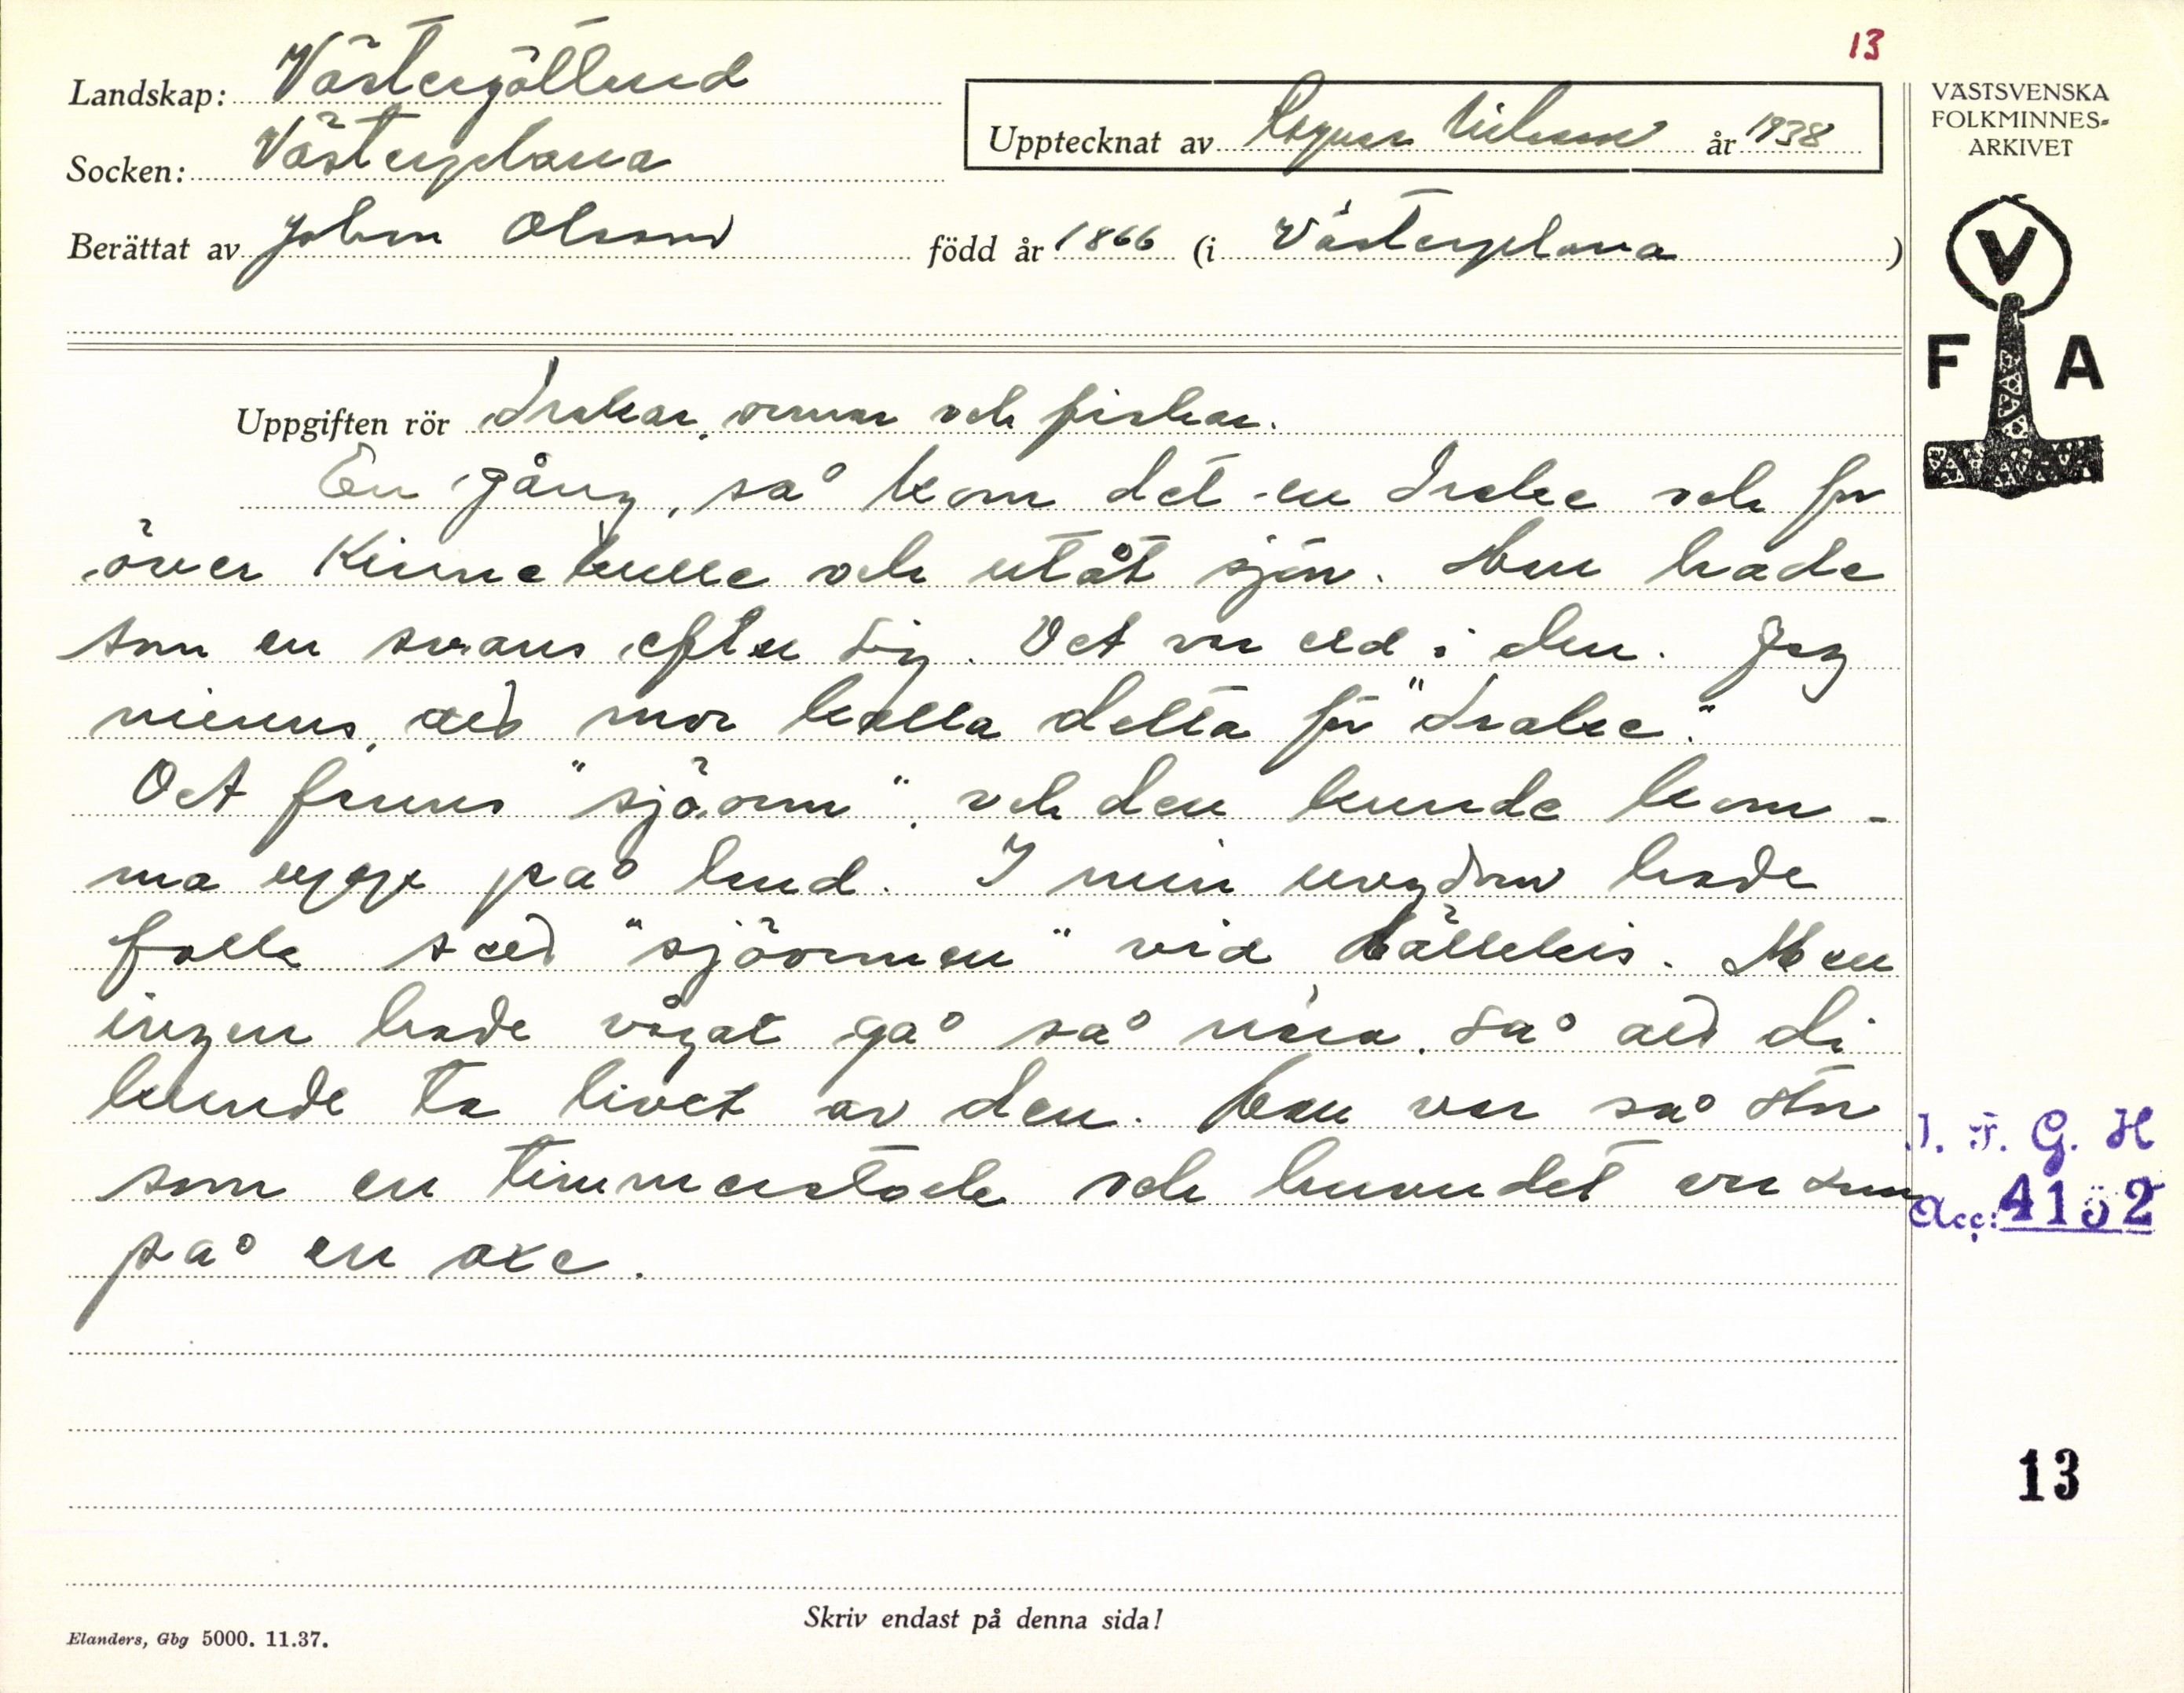 13
Landskap: Västergötland
Socken: Västerplana
Upptecknat av Ragnar Nilsson år 1938
Berättat av Johan Olsson född år 1866 (i Västerplana )
VÄSTSVENSKA
FOLKMINNES-
ARKIVET
V
F A
Uppgiften rör Drakar, ormar och fiskar.
En gång, så kom det en drake och for
över Kinnekulle och utåt sjön. Han hade
som en svans efter sig. Det var eld i den. Jag
minns, att mor kalla detta för "drake".
Det fanns "sjöorm", och den kunde kom-
ma upp på land. I min ungdom hade
folk sett "sjöormen" vid Hällekis. Men
ingen hade vågat gå så nära, så att di
kunde ta livet av den. Han var så stor
som en timmerstock och huvudet var som
på en oxe.
I. F. G. H
Acc: 4152
13
Skriv endast på denna sida!
Elanders, Gbg 5000. 11.37.